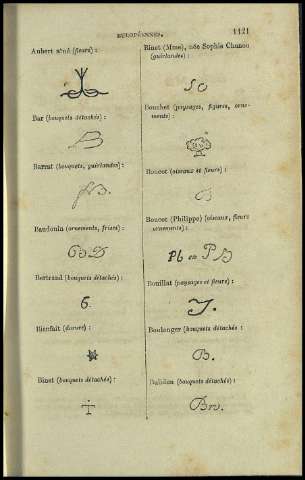 EUROPÉENNES. 1121
Aubert aîné (fleurs) :
Bar (bouquets détachés) :
B
Barrat (bouquets, guirlandes) :
fB.
Baudouin (ornements, frises) :
B.D
Bertrand (bouquets détachés) :
6.
Bienfait (dorure) :
Binet (bouquets détachés) :
Binet (Mme), née Sophie Chanou
(guirlandes) :
SC
Bouchet (paysages, figures, orne-
ments) :
Boucot (oiseaux et fleurs) :
B
Boucot (Philippe) (oiseaux, fleurs
ornements) :
Pb ou PB
Bouillat (paysages et fleurs) :
Y.
Boulanger (bouquets détachés :
B.
Bulidon (bouquets détachés) :
Bn.